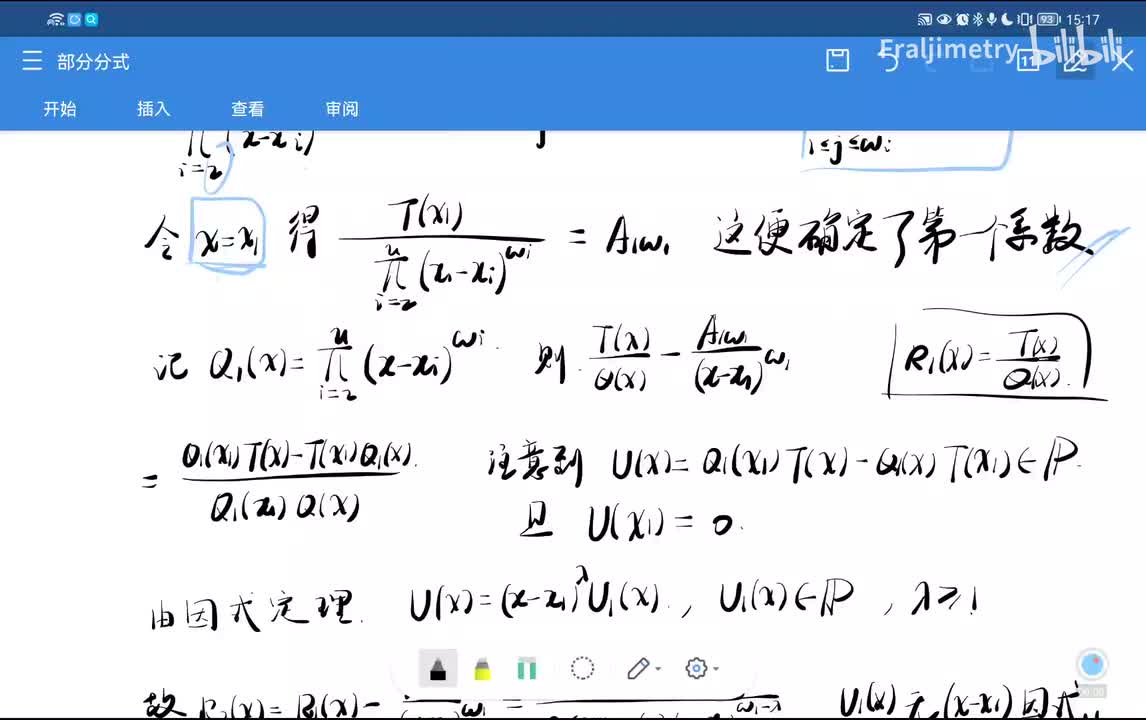 93 15:17
部分分式
Eraljimetry bilibili
11
开始 插入 查看 审阅
∏ (x-xi)
i=2
1≤j≤ωi
令 x=x₁ 得 T(x₁) / ∏_{i=2}^{n} (x₁-xi)^{ωi} = A₁ω₁ 这便确定了第一个系数
记 Q₁(x)= ∏_{i=2}^{n} (x-xi)^{ωi} 则 T(x)/Q(x) - A₁ω₁/(x-x₁)^{ω₁} R₁(x)= T(x)/Q(x)
= (Q₁(x₁)T(x)-T(x₁)Q₁(x)) / (Q₁(x₁)Q(x)) 注意到 U(x)= Q₁(x₁)T(x)-Q₁(x)T(x₁)∈ℙ.
且 U(x₁)=0.
由因式定理. U(x)=(x-x₁)^λ U₁(x), U₁(x)∈ℙ, λ≥1
故 R₂(x)=R₁(x)- U₁(x)无(x-x₁)因式
00:00